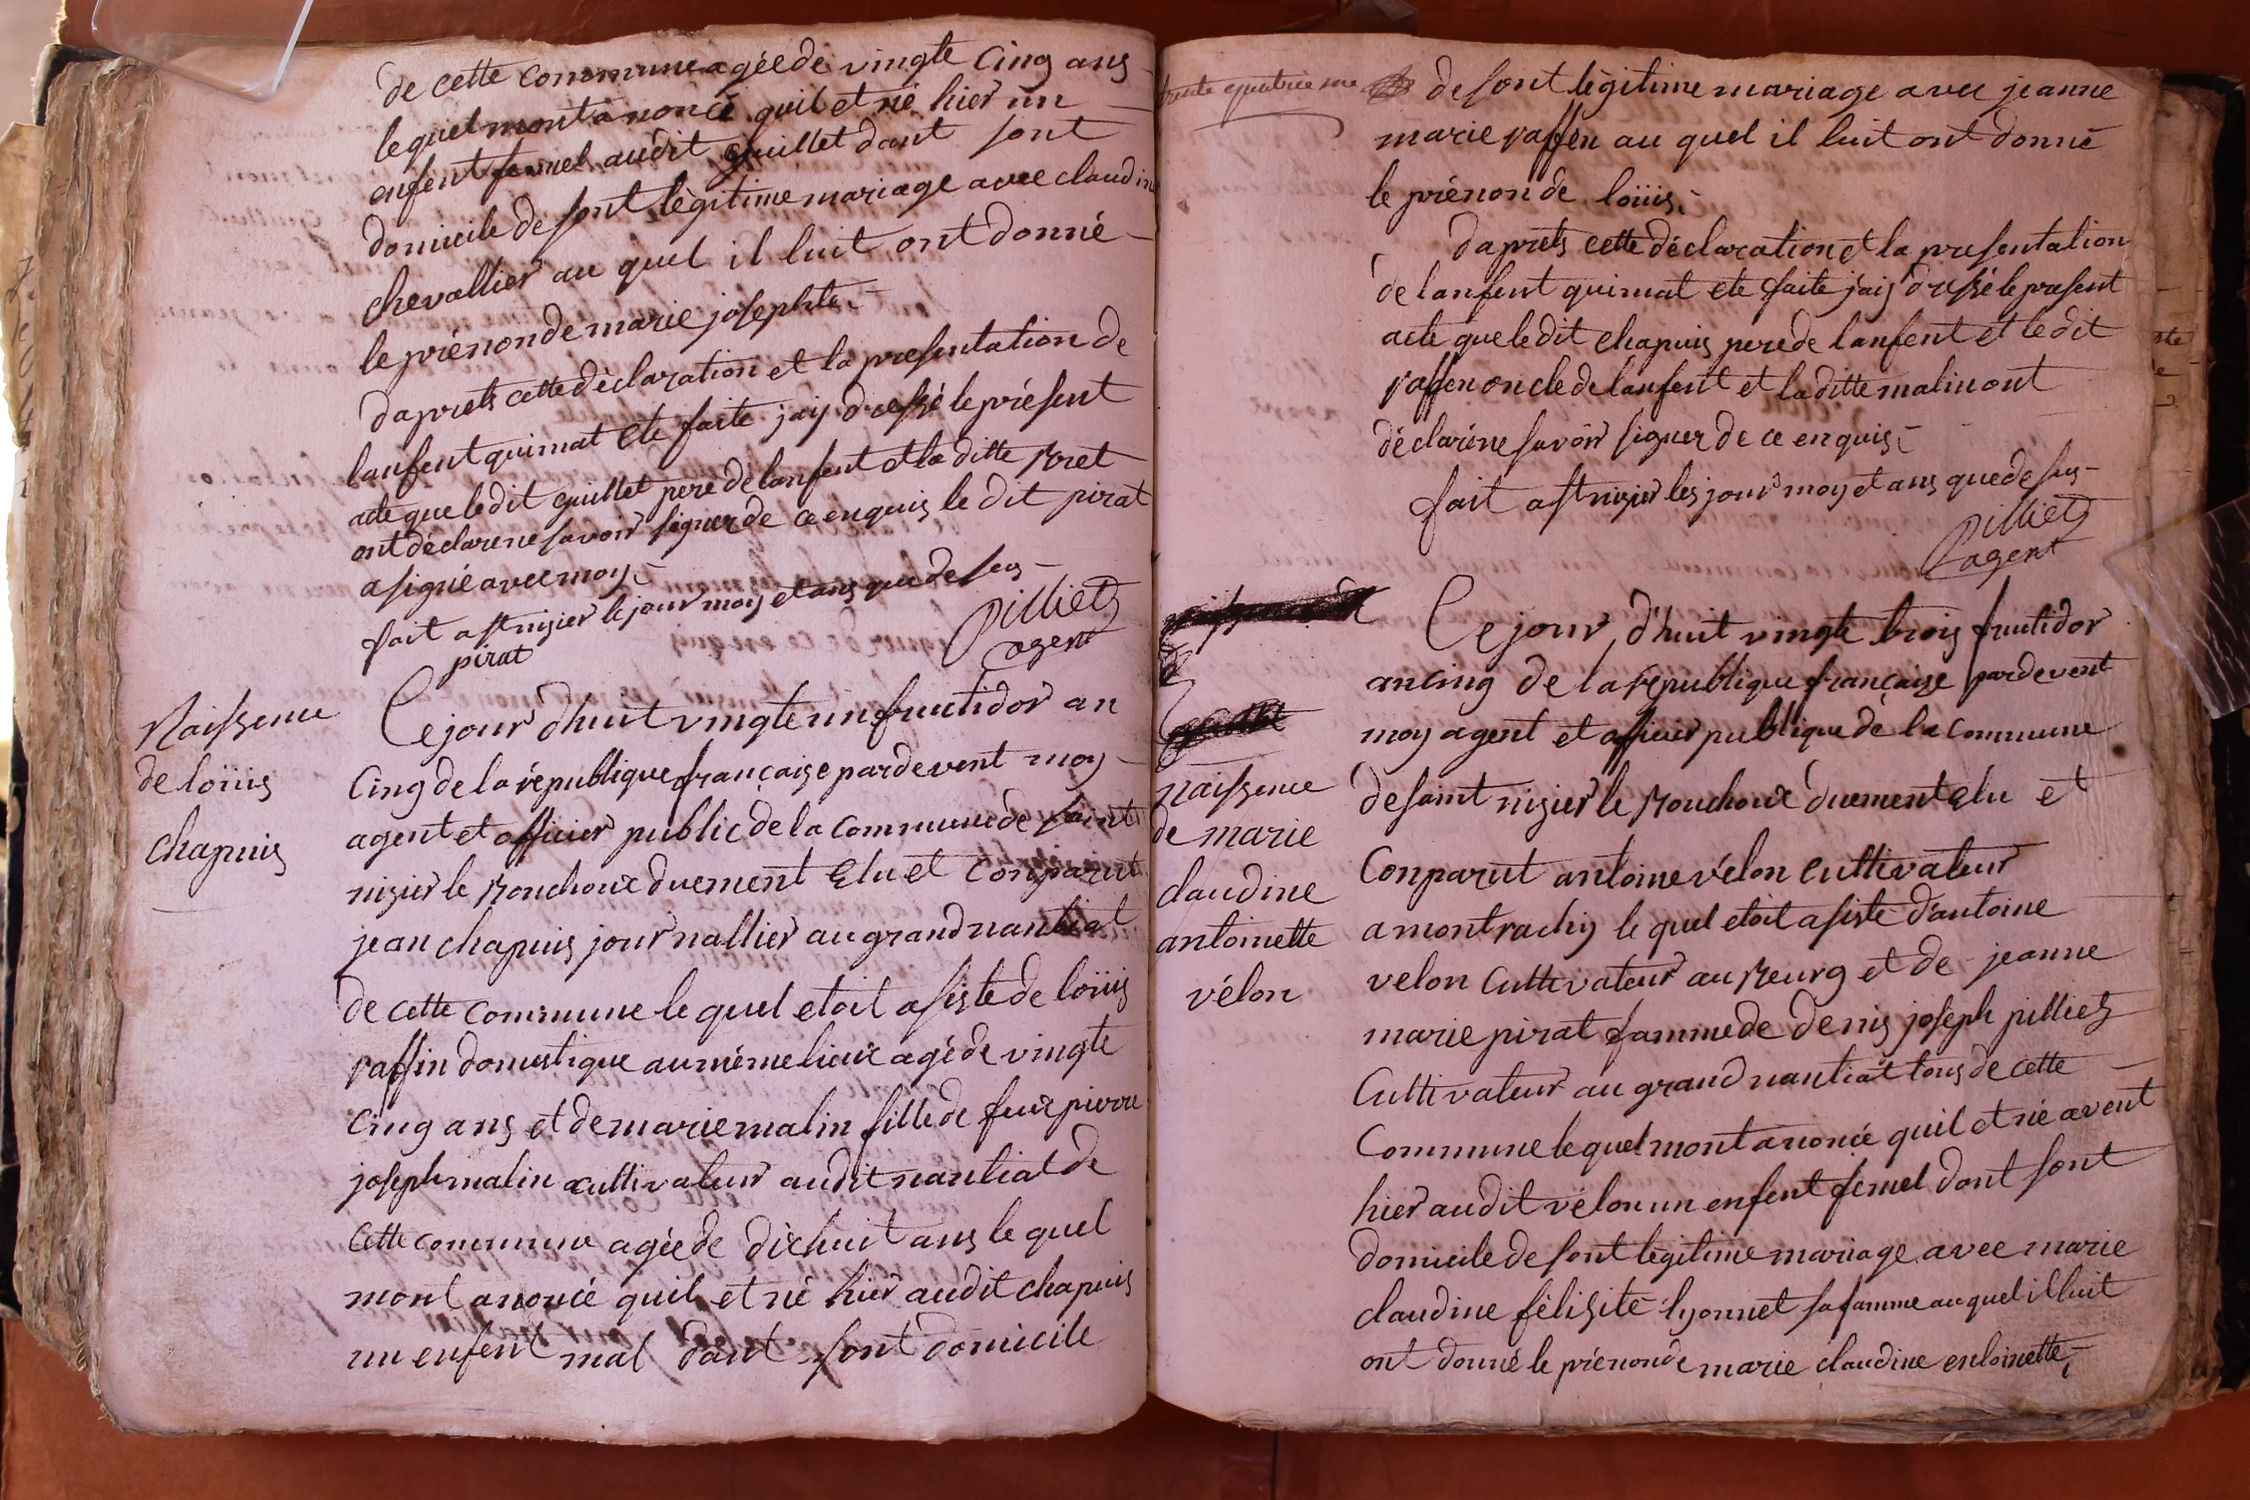 de cette commune agéede vingte cinq ans
lequel mont anoncé quil et né hier un
enfent femel audit guillet dont sont
domicile de sont légitime mariage avec claudine
chevallier au quel il luit ont donné
le prénon de marie josephte
daprets cette déclaration et la presentation de
lanfent quimat ete faite jaij dressé le présent
acte que ledit guillet pere de lanfent et la ditte Moret
ont déclarene savoir signer de ce enquis le dit pirat
a signé avec moy
fait a st nizier le jour moy et ans que desus
pirat
pilliet
agent
Naissence
de loüis
chapuis
Ce jour d'huit vingte un fructidor an
cinq de la république françaize pardevent moy
agent et officier public de la commune de saint
nizier le Bouchoux duement Elu et Conparut
jean chapuis journallier au grand nantiat
de cette commune le quel etoit asiste de loüis
raffin domestique au méme lieux agé de vingte
cinq ans et de marie malin fille de feux pierre
joseph malin cultivateur audit nantiat de
cette commune agée de dixhuit ans le quel
mont anoncé quil et né hier audit chapuis
un enfent mal dont sont domicile
trente quatrieme
de sont légitime mariage avec jeanne
marie raffen au quel il luit ont donné
le prénon de loüis
daprets cette déclaration et la presentation
de lanfent quimat ete faite jaij dressé le present
acte que ledit chapuis perede lanfent et ledit
raffen oncle de lanfent et laditte malin ont
déclaréne savoir signer de ce enquis
fait a st nizier les jour moy et ans que desus
pilliet
agent
Naissence
de marie
claudine
antoinette
vélon
Ce jour d'huit vingte trois fructidor
an cinq de la république françaize pardevent
moy agent et officier publique de la commune
de saint nizier le Bouchoux duement Elu et
Conparut antoine vélon cultivateur
a montrachy le quel etoit asisté d'antoine
velon Cultivateur au Beurg et de jeanne
marie pirat famme de denis joseph pilliet
Cultivateur au grand nantiat tous de cette
Commune lequel mont anoncé quil et né avent
hier audit vélon un enfent femel dont sont
domicile de sont légitime mariage avec marie
claudine félisité lyonnet sa famme au quel il luit
ont donné le prénon de marie claudine entoinette